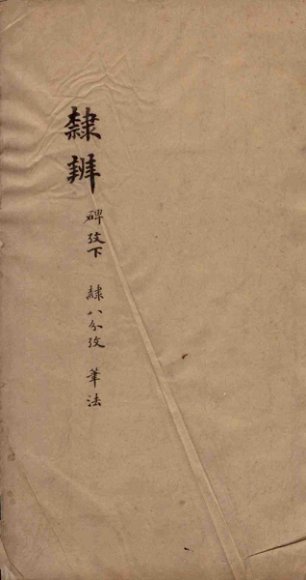 隸辨
碑攷下 隸八分攷 筆法